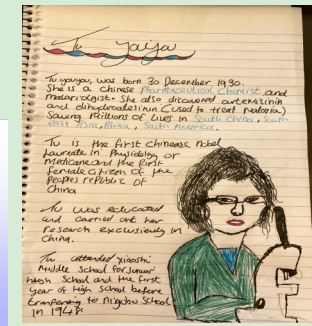 Tu youyou
Tu youyou, was born 30 December 1930.
She is a chinese Pharmaceutical Chemist and
malariologist. She also discovered artemisinin
and dihydroartesinin (used to treat malaria)
Saving Millions of lives in South china, South
east Asia, Africa, South America.
Tu is the first chinease nobel
laureate in Physiology or
medicane and the first
female citizen of the
peoples republic of
China
Tu was educated
and carried out her
research exclusively in
China.
Tu attended xiaoshi
Middle School for Junior
high School and the first
year of high School before
tranfering to Ningbo School
in 1948